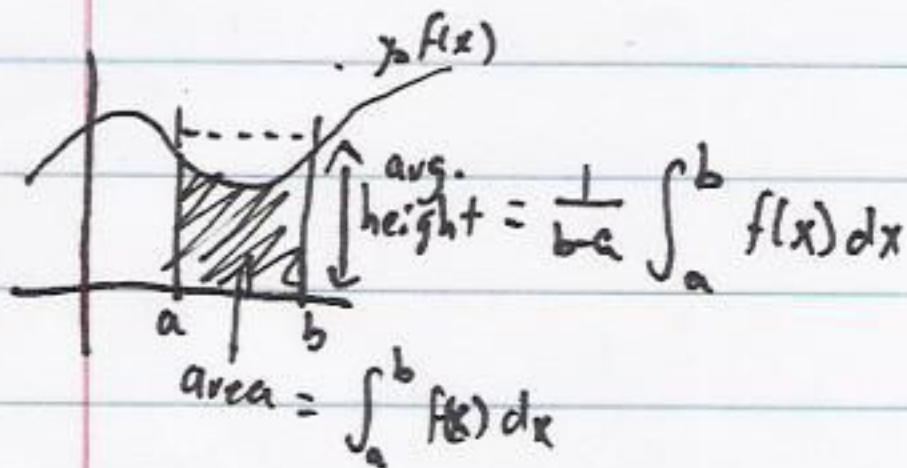 y = f(x)
avg.
height = 1/(b-a) ∫_a^b f(x) dx
a b
area = ∫_a^b f(x) dx